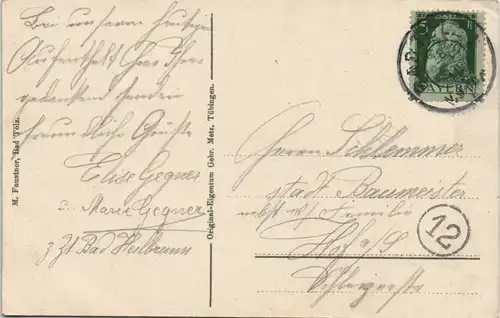 Bei unserem heutigen
Aufenthalt hier Ihrer
gedenkend senden
freundliche Grüsse
Elise Gegner
u. Marie Gegner
z Zt Bad Heilbrunn
M. Faustner, Bad Tölz.
Original-Eigentum Gebr. Metz, Tübingen.
5
BAYERN
Herrn Schlemmer
stadt Baumeister
nebst w/ Familie
Hof a/S
12